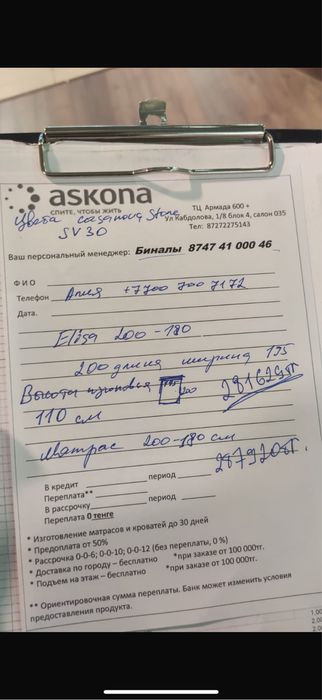 askona
СПИТЕ, ЧТОБЫ ЖИТЬ
ТЦ Армада 600 +
Ул Кабдолова, 1/8 блок 4, салон 035
Тел: 87272275143
Цвета casanova Stone
SV30
Ваш персональный менеджер: Биналы 8747 41 000 46
Ф И О
Телефон Алия +7700 700 7172
Дата.
Elisa 200-180
200 длина ширина 195
Высота изголовья 200 281629т
110 см
Матрас 200-180 см
287920т.
В кредит период
Переплата**
В рассрочку период
Переплата 0 тенге
* Изготовление матрасов и кроватей до 30 дней
* Предоплата от 50%
* Рассрочка 0-0-6; 0-0-10; 0-0-12 (без переплаты, 0 %)
* Доставка по городу – бесплатно *при заказе от 100 000тг.
* Подъем на этаж – бесплатно *при заказе от 100 000тг.
** Ориентировочная сумма переплаты. Банк может изменить условия
предоставления продукта.